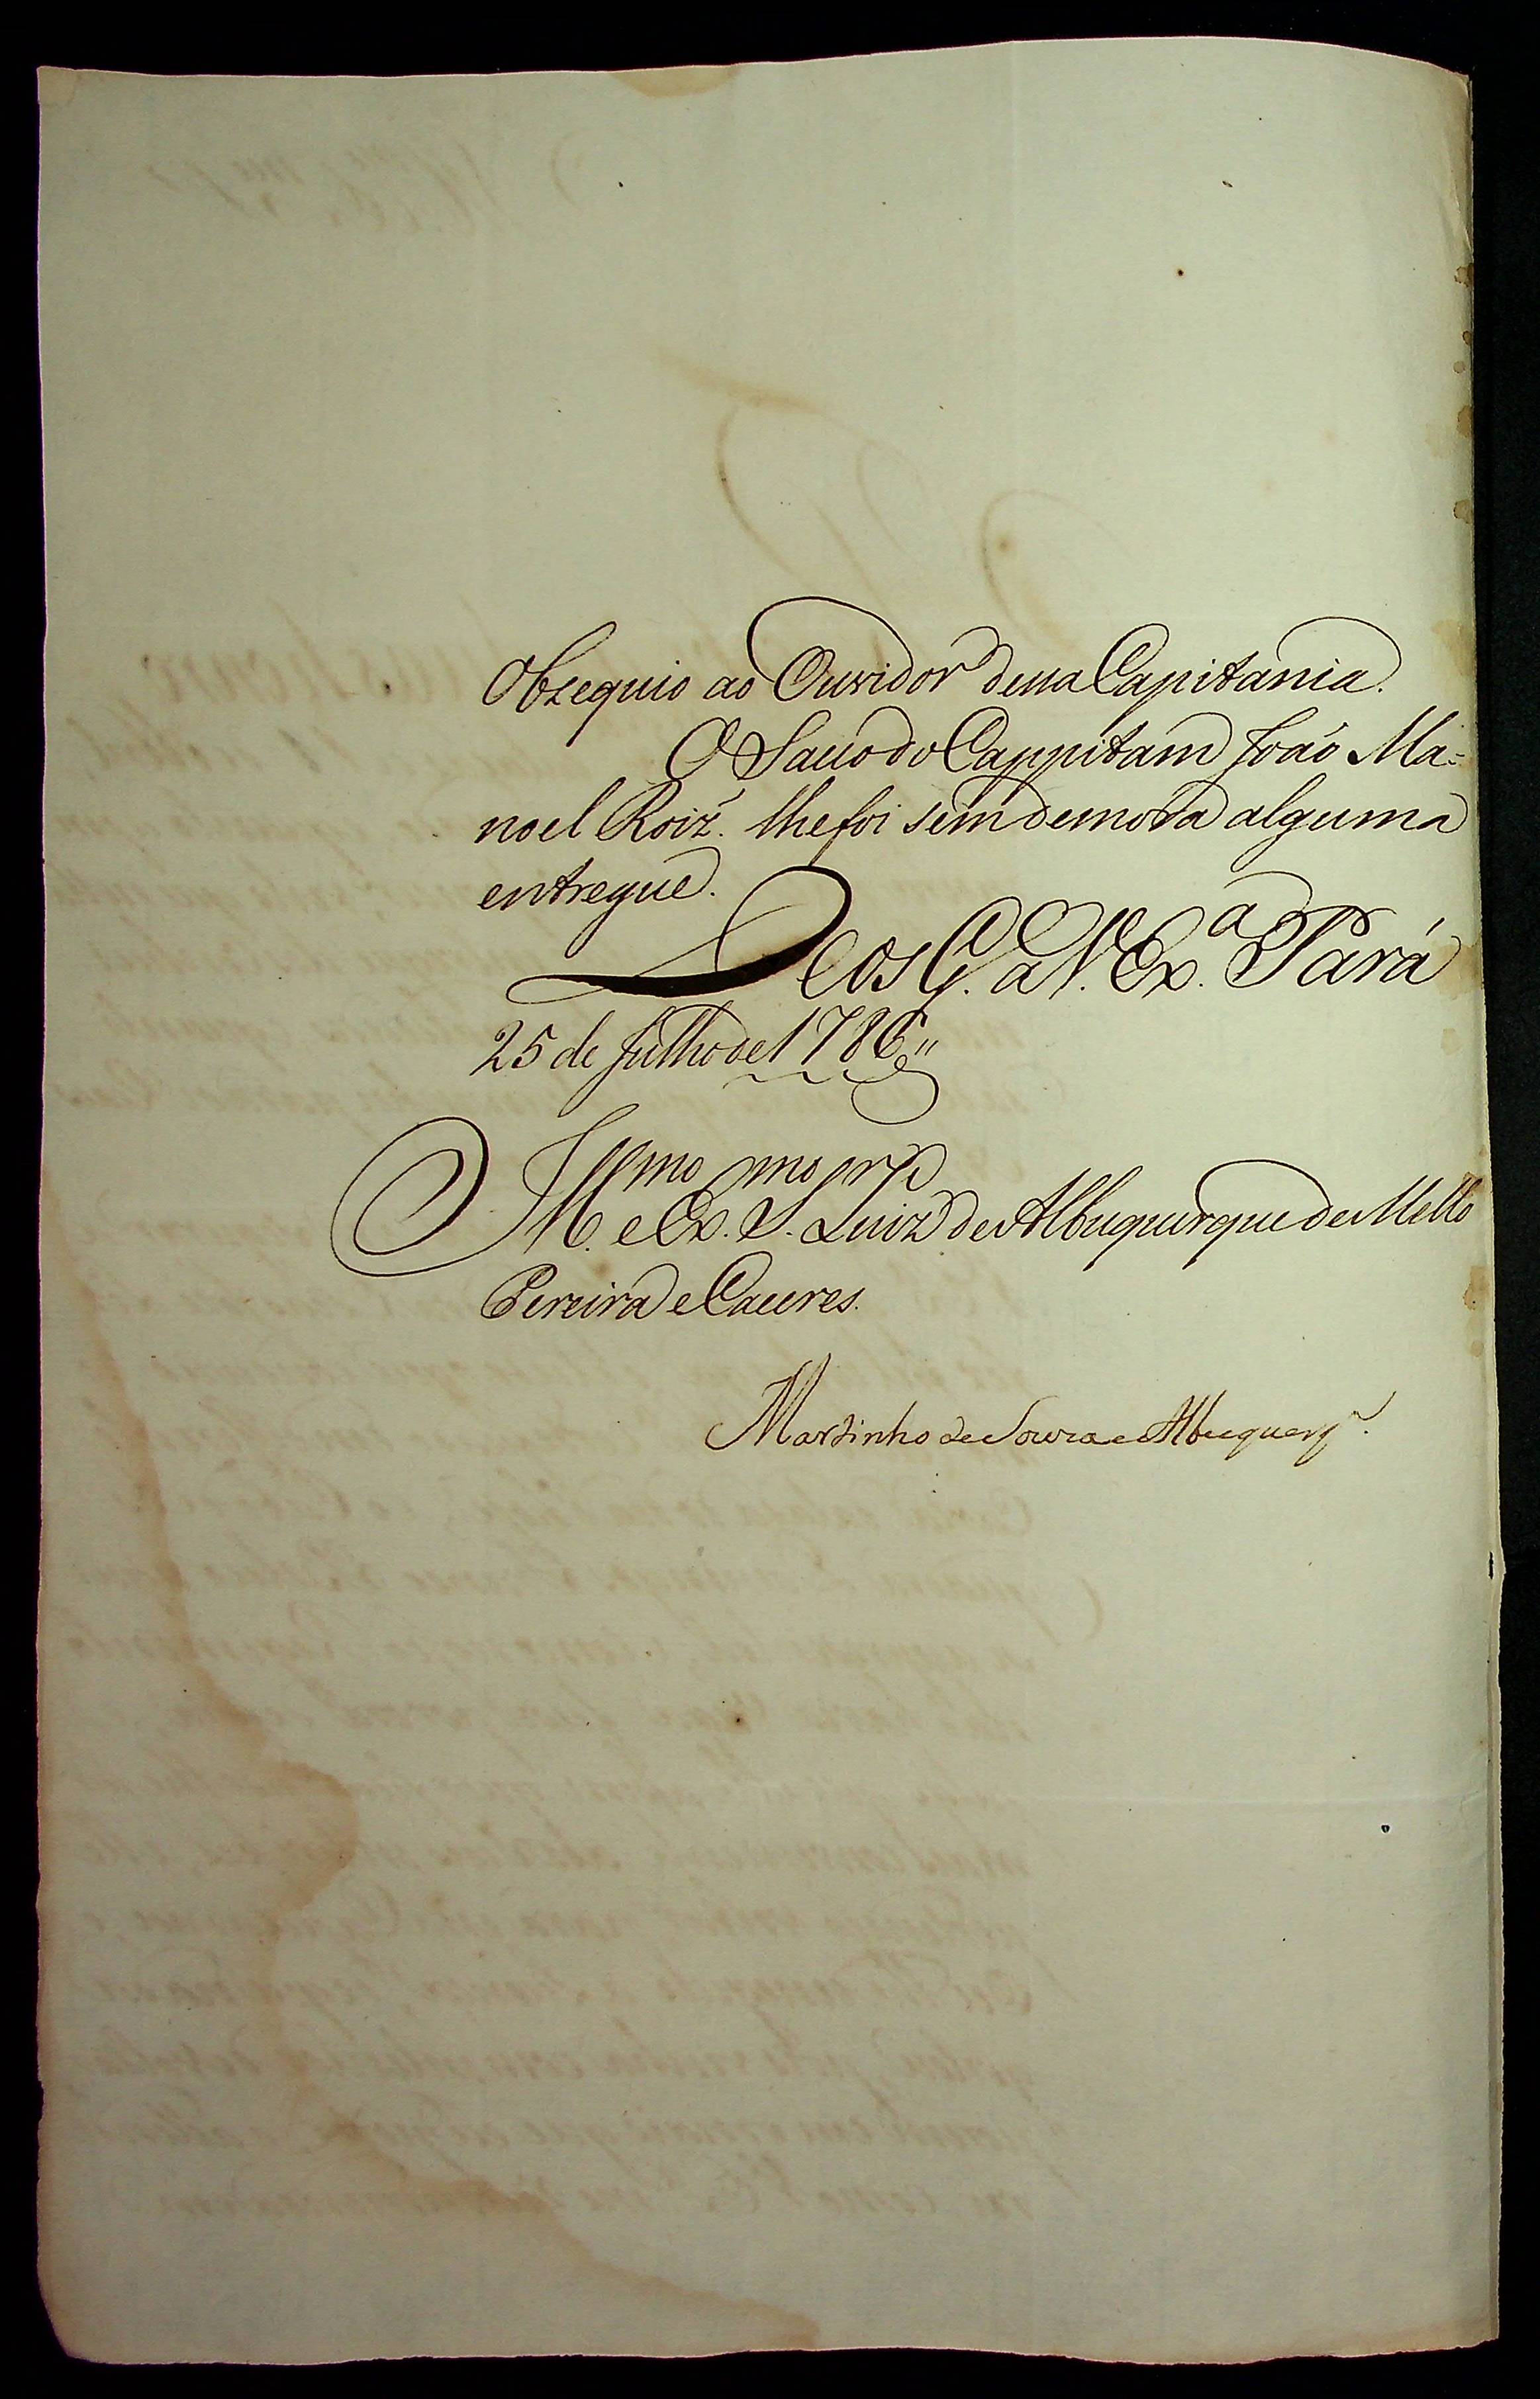 Obzequio ao Ouvidor dessa Capitania.
O Sacco do Cappitam João Ma=
noel Roiz. lhe foi sem demora alguma
entregue.
Deos G.e a V. Ex.a Pará
25 de Julho de 1786,,
Ill.mo e Ex.mo S.r Luiz de Albuquerque de Mello
Pereira e Caceres.
Martinho de Souza e Albuquerq.